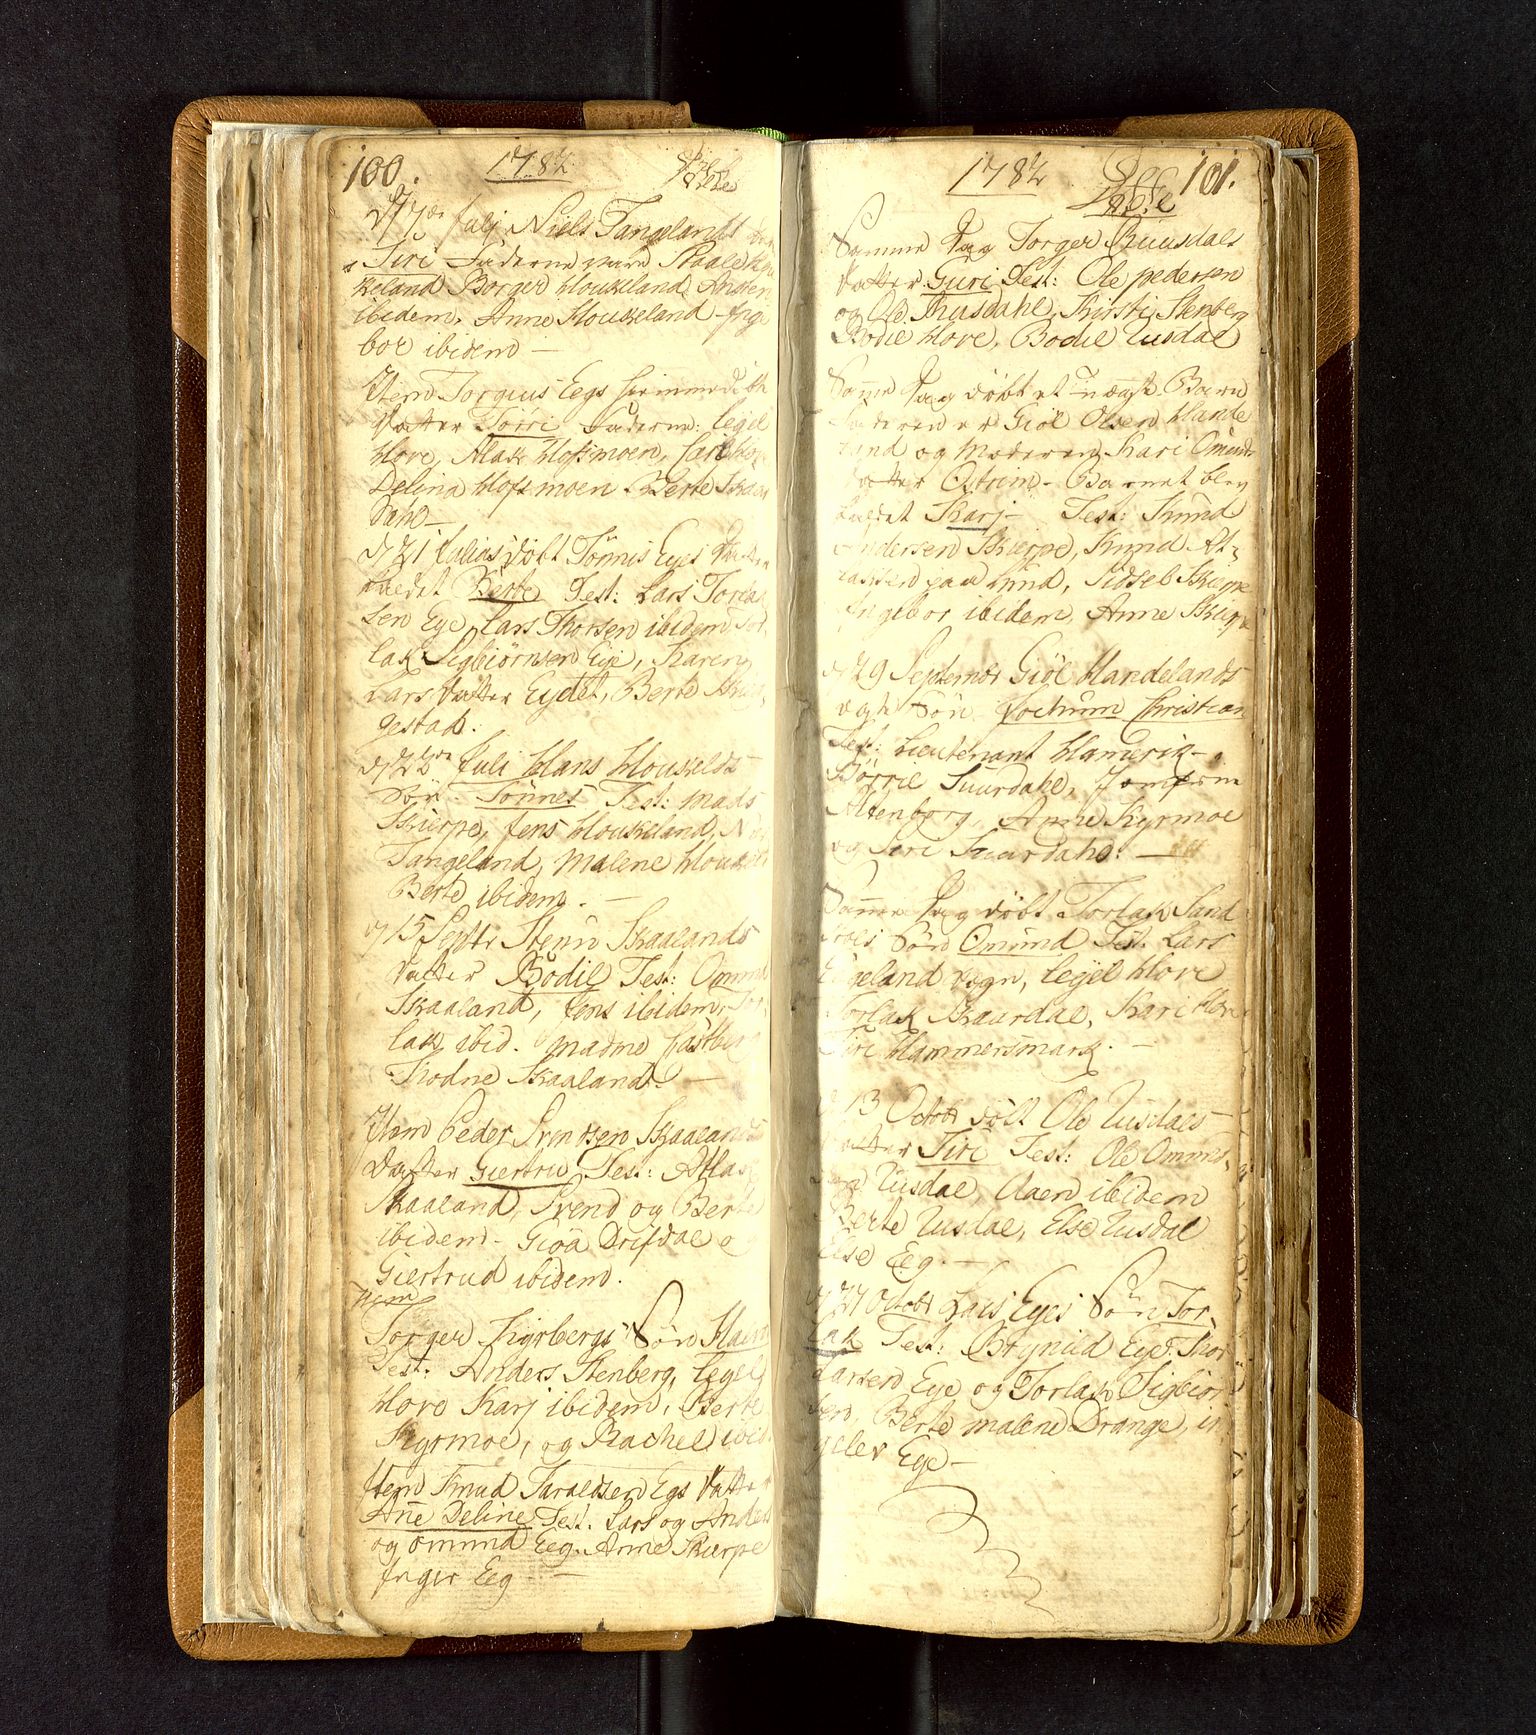 100. 1782
d 7de julj Niels Tangelands
Siri Faderne vare
keland Borger Houskeland Anders
ibidem. Anne Houskeland Inge
bor ibidem —
Item Torgius Eegs hiemmedøbt
datter Torri Faderne: Legel
Hove, Atlak Hofsmoen,
Delina Hofsmoen Berte Skaar
dahl —
d 21 Julias døbt Tönnis Eyes datter
kaldet Berte Test: Lars Torla
sen Eye, Lars Thorsen ibidem Tor
lak Sigbiörnsen Eye, Karen
Lars datter Eydet, Berte
gestad.
d 22de Juli Hans Houskelds
Sön Tönnes Test: Mads
Skierpe, Jens Houskeland,
Tangeland, Malene Houskel
Berte ibidem. —
d 15 Septr Steen Skaalands
datter Bodil Test: Omund
Skaaland, Jens ibidem Tor
lak ibid. Madme
Thodne Skaaland. —
Item Peder Svendsen Skaalands
datter Giertru Test: Atlak
Skaaland, Svend og Berte
ibidem. Gioa Drifdal o
Giertrud ibidem.
Item
Torger Kyrbergs Sön
Test: Anders Stenberg, Legel
Hove Karj ibidem, Berte
Kyrmoe, og Rachel ibid.
Item Knud Taraldsen Egs datter
Ane Deline Test: Lars og Anders
og Omund Eeg. Anne Skierpe
Inger Eeg —
1782 101.
Samme dag Torger Ruusdals
datter Guri Test: Ole pedersen
og Ole Ruusdahl, Kirsti Stenberg
Bodil Hove, Bodil Uusdal
Same dag döbt et uægt Barn
Faderen er Giöl Olsen Hande
land og Moderen Kari Omunds
datter Østrem. Barnet blev
kaldet Karj — Test: Knud
Andersen Skierpe, Knud At-
laksen paa Lund, Sidsel Skierpe
Ingebor ibidem, Anne Skierpe
d 29 September Giöl Handelands
ægte Sön Jochum Christian
Test: Lieutenant Hamerik —
Börril Suurdahl, Jomfrue
Altenborg, Anne Kyrmoe
og Siri Suurdahl. —
Samme dag döbt Torlak Sand
Sön Omund Test: Lars
Eigeland Vegn, Legel Hove
Torlak Skaardal, Kari Hove
Siri Hammersmark. —
d 13 Octobr döbt Ole Uusdals
datter Siri Test: Ole Omund-
sen Uusdal, Aaen ibidem
Berte Uusdal, Else Uusdal
Else Eeg. —
d 27 Octobr Lars Eyes Sön Tor-
lak Test: Brynild Eye, Thor
Larsen Eye og Torlak Sigbiörn
sen, Berte Malene Drange, in
geler Ege —